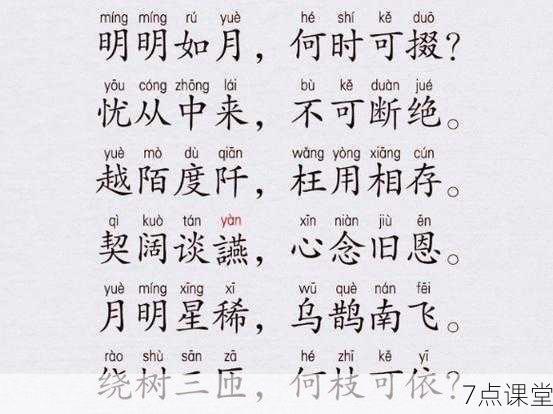 míng míng rú yuè hé shí kě duō
明明如月，何时可掇？
yōu cóng zhōng lái bù kě duàn jué
忧从中来，不可断绝。
yuè mò dù qiān wǎng yòng xiāng cún
越陌度阡，枉用相存。
qì kuò tán yàn xīn niàn jiù ēn
契阔谈讌，心念旧恩。
yuè míng xīng xī wū què nán fēi
月明星稀，乌鹊南飞。
rào shù sān zā hé zhī kě yī
绕树三匝，何枝可依？
7点课堂